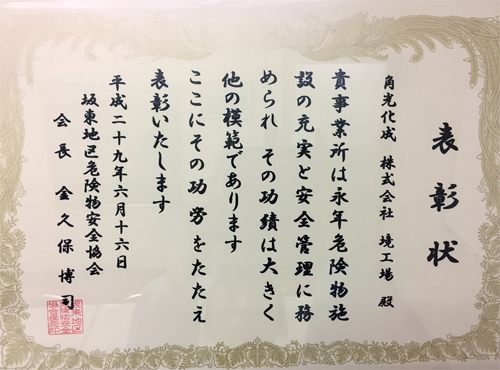 表彰状
角光化成 株式会社 境工場 殿
貴事業所は永年危険物施
設の充実と安全管理に務
められ その功績は大きく
他の模範であります
ここにその功労をたたえ
表彰いたします
平成二十九年六月十六日
坂東地区危険物安全協会
会長 金久保博司